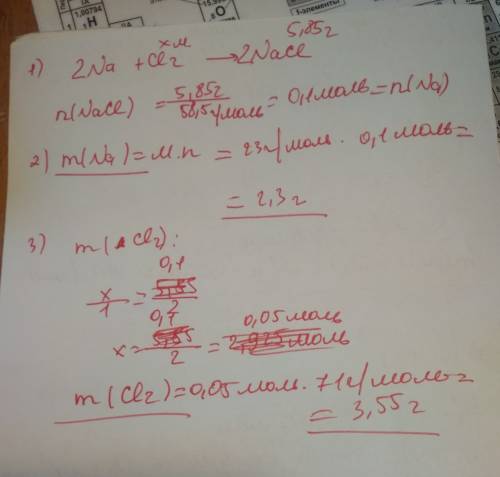 х м 5,85г
1) 2Na + Cl2 → 2NaCl
n(NaCl) = 5,85г / 58,5г/моль = 0,1 моль = n(Na)
2) m(Na) = M·n = 23г/моль · 0,1 моль =
= 2,3г
3) m(Cl2):
x/1 = 0,1/2
x = 0,1/2 = 0,05 моль
m(Cl2) = 0,05 моль · 71г/моль =
= 3,55г